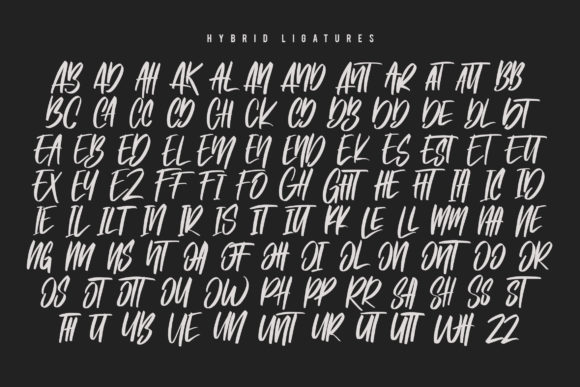 HYBRID LIGATURES
AB AD AH AK AL AN AND ANT AR AT ATT BB
BC CA CC CD CH CK CO DB DD DE DL DT
EA EB ED EL EM EN END EK ES EST ET ETT
EX EY EZ FF FI FO GH GHT HE HT IA IC ID
IE IL ILT IN IR IS IT ITT KK LE LL MM NA NE
NG NN NS NT OA OF OH OI OL ON ONT OO OR
OS OT OTT OU OW PH PP RR SA SH SS ST
TH TT UB UE UN UNT UR UT UTT WH ZZ